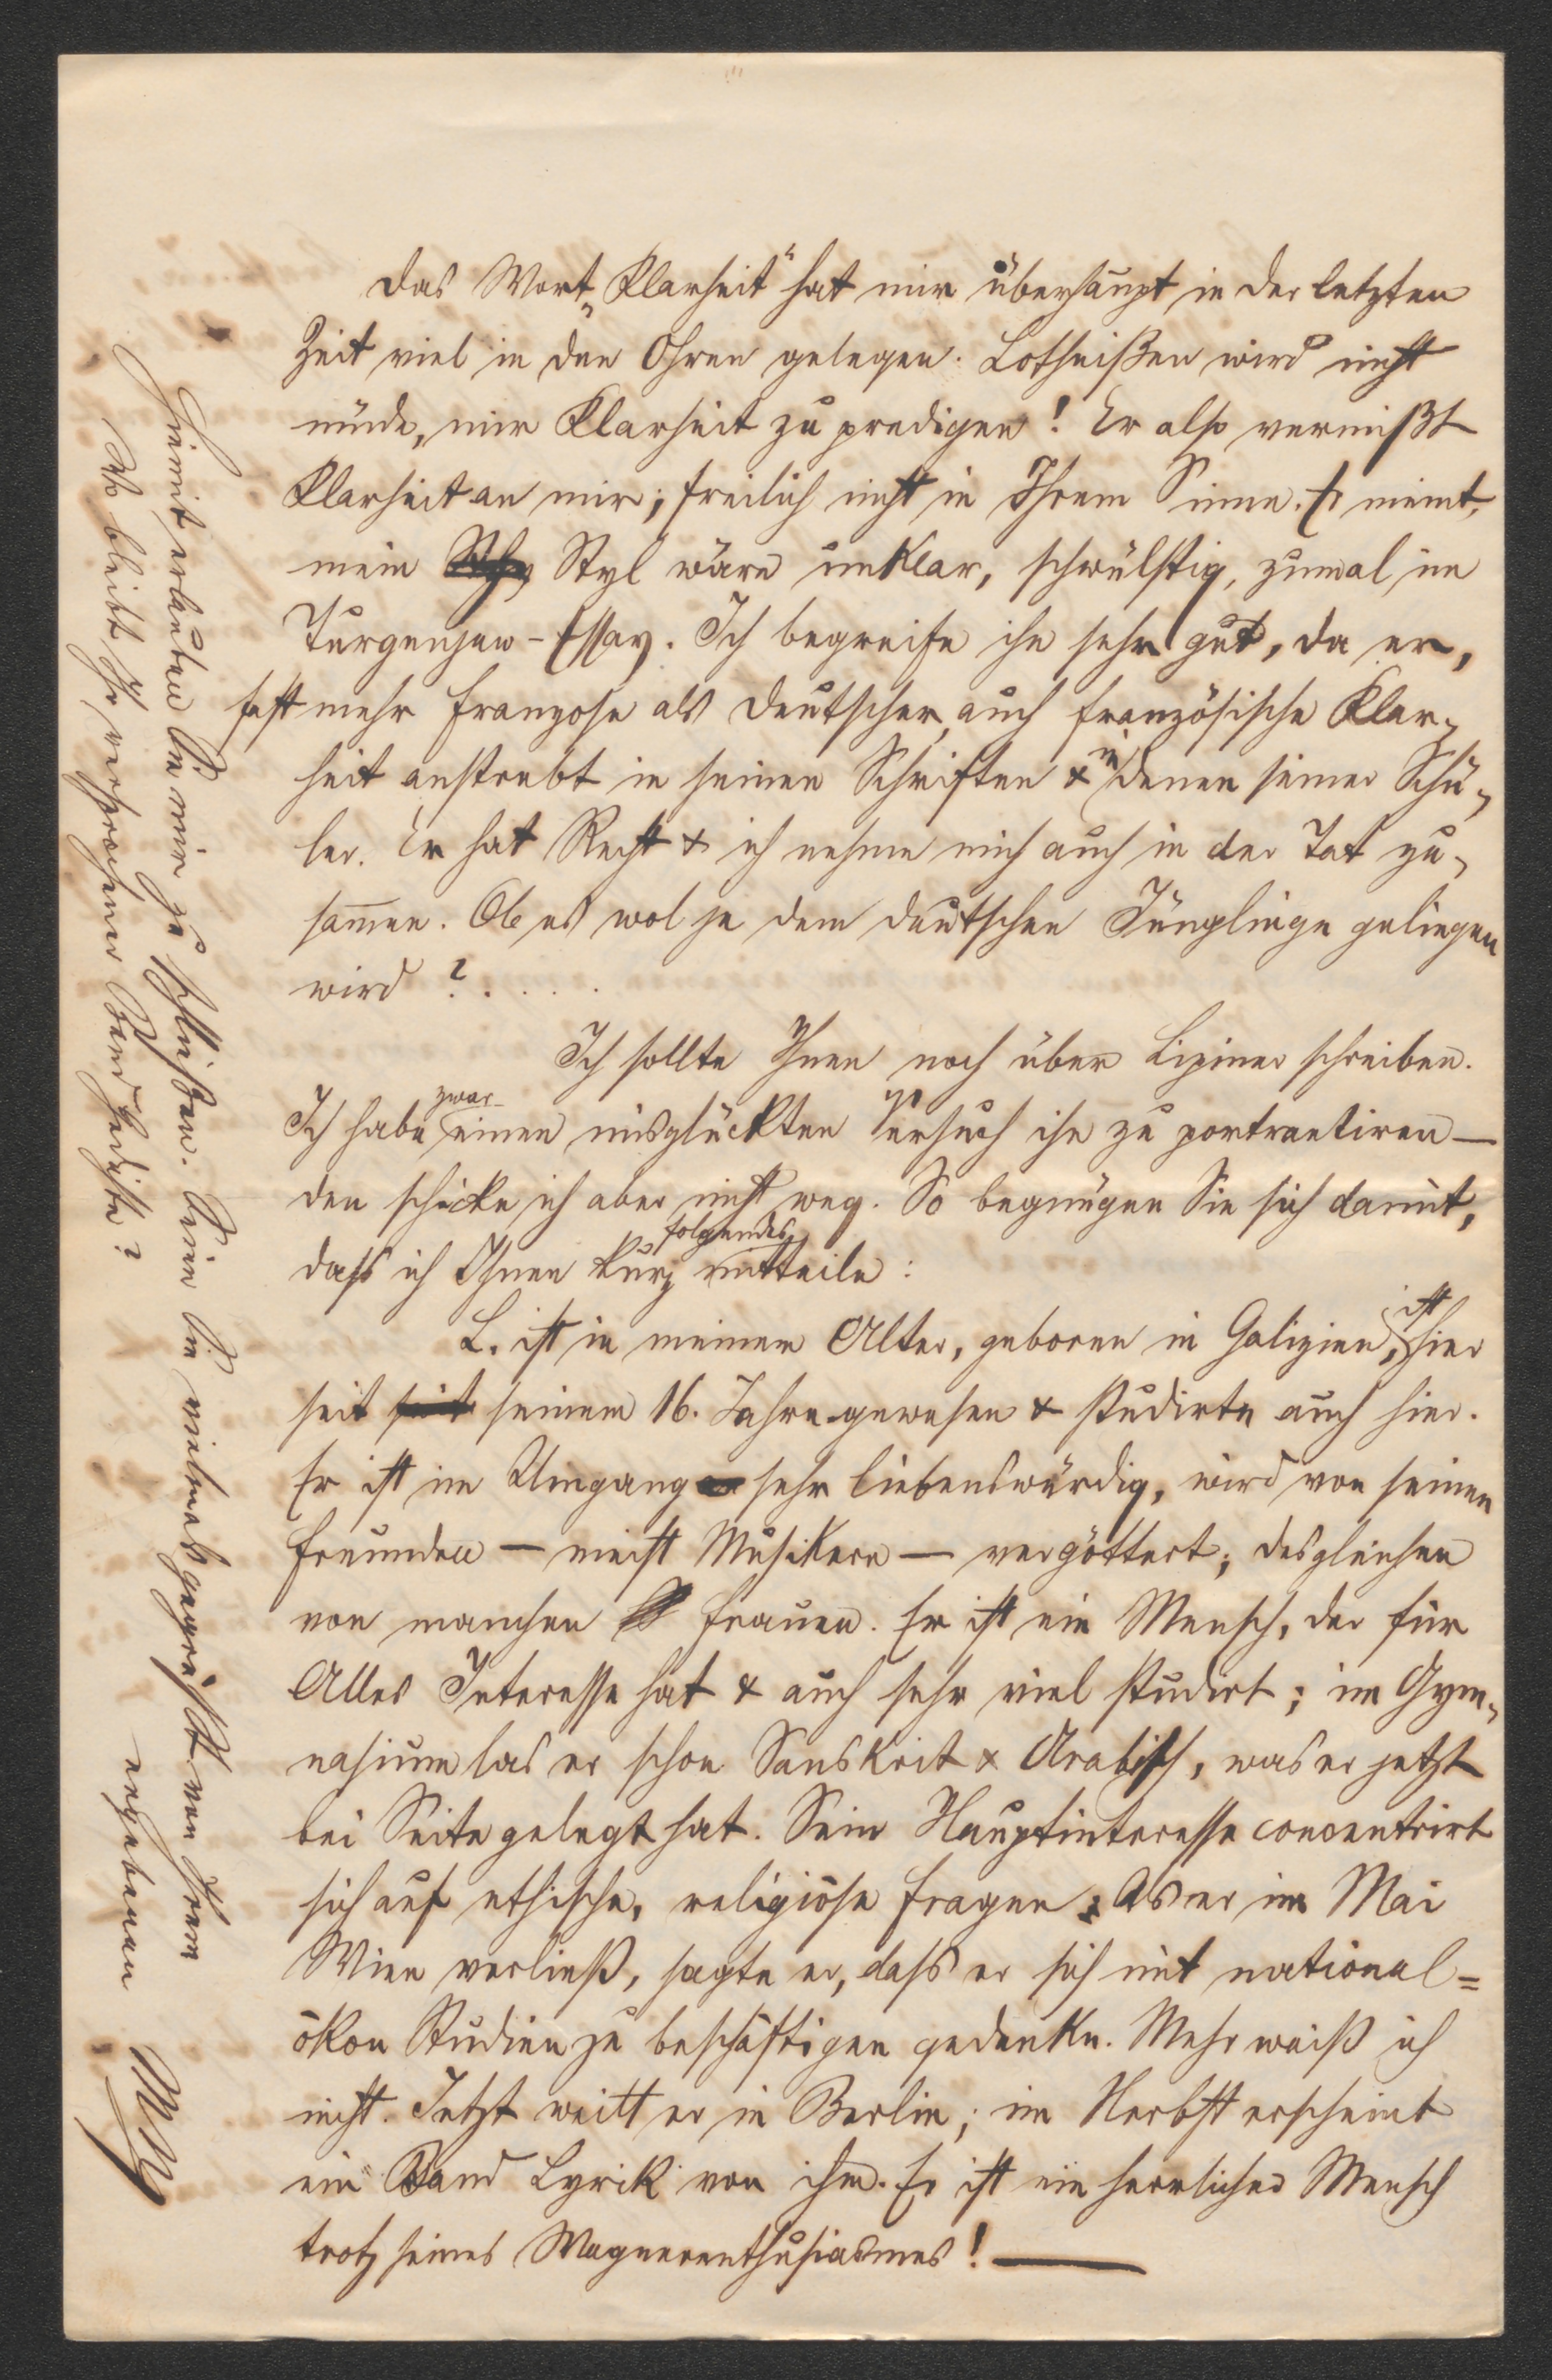 Das Wort „Klarheit“ hat mir überhaupt in der letzten
Zeit viel in den Ohren gelegen. Lotheißen wird nicht
müde, mir Klarheit zu predigen! Er also vermißt
Klarheit an mir; freilich nicht in Ihrem Sinne. Er meint,
mein Styl wäre unklar, schwülstig, zumal im
Turgenjew-Essay. Ich begreife ihn sehr gut, da er,
fast mehr Franzose als Deutscher, auch französische Klar-
heit anstrebt in seinen Schriften & in denen seiner Schü-
ler. Er hat Recht & ich nehme mich auch in der Tat zu-
sam̄en. Ob es wol je dem deutschen Jünglinge gelingen
wird?.....
Ich sollte Ihnen noch über Lipiner schreiben.
Ich habe zwar einen misglückten Versuch ihn zu portraetiren —
den schicke ich aber nicht weg. So begnügen Sie sich damit,
dass ich Ihnen kurz folgendes mitteile:
L. ist in meinem Alter, geboren in Galizien, ist hier
seit seit seinem 16. Jahre gewesen & studirte auch hier.
Er ist im Umgang sehr liebenswürdig, wird von seinen
Freunden — meist Musikern — vergöttert; desgleichen
von manchen Frauen. Er ist ein Mensch, der für
Alles Interesse hat & auch sehr viel studirt; im Gym-
nasium las er schon Sanskrit & Arabisch, was er jetzt
bei Seite gelegt hat. Sein Hauptinteresse concentrirt
sich auf ethische, religiöse Fragen. Als er im Mai
Wien verließ, sagte er, dass er sich mit national=
ökon Studien zu beschäftigen gedenke. Mehr weiß ich
nicht. Jetzt weilt er in Berlin; im Herbst erscheint
ein Band Lyrik von ihm. Er ist ein herrlicher Mensch
trotz seines Wagnerenthusiasmus! —
Hiemit erlauben Sie mir zu schließen. Seien Sie vielmals gegrüßt von Ihrem
ergebenen
MN
Wo bleibt Ihr versprochener Band Gedichte?